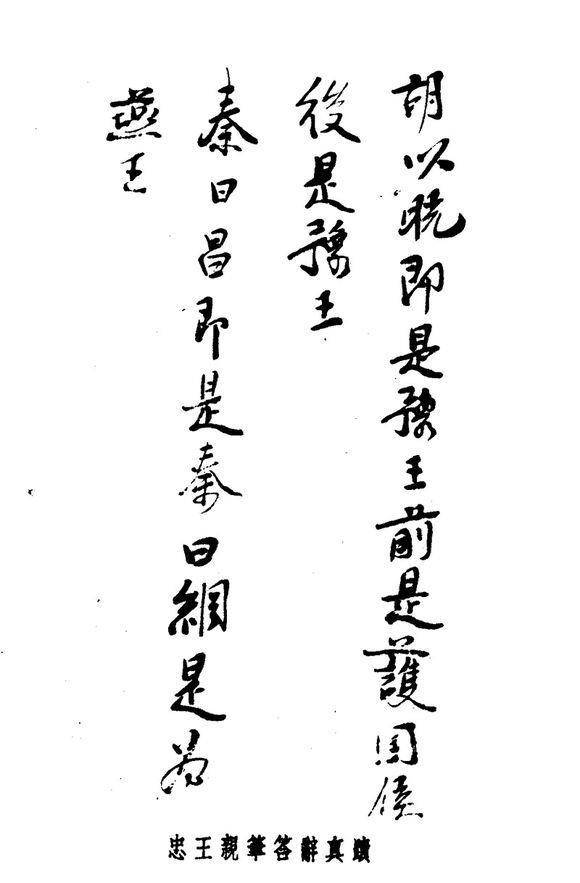 胡以晄即是豫王前是護囯侯
後是豫王
秦日昌即是秦日綱是為
燕王
忠王親筆答辭真蹟